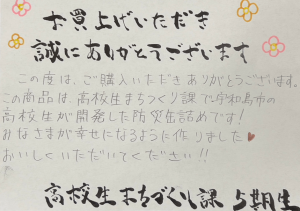 お買上げいただき
誠にありがとうございます
この度は、ご購入いただきありがとうございます。
この商品は、高校生まちづくり課で宇和島市の
高校生が開発した防災缶詰めです!
みなさまが幸せになるように作りました♥
おいしくいただいてください!!
高校生まちづくり課 5期生